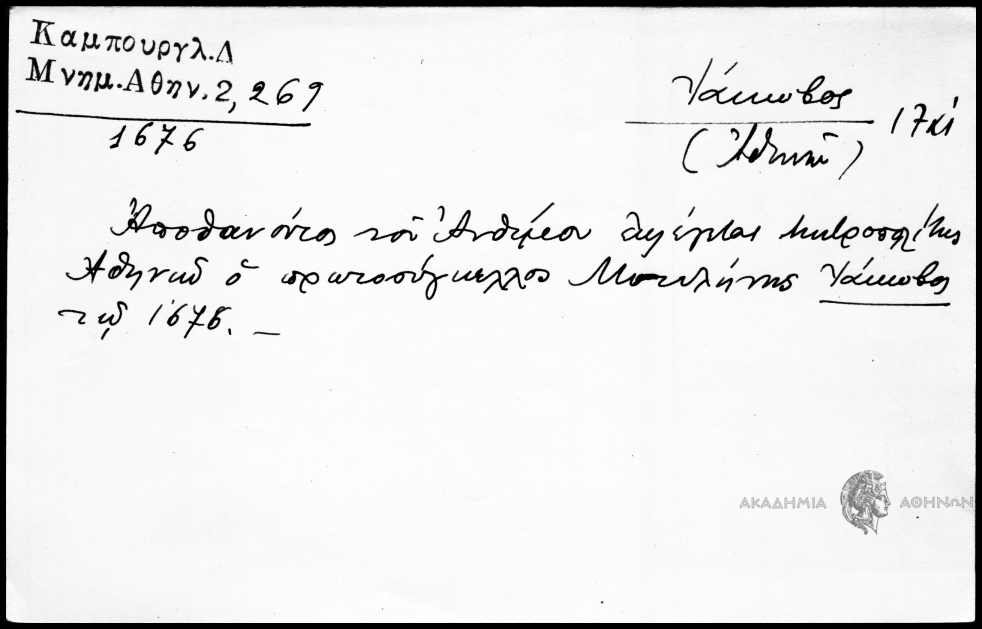 Καμπουργλ. Δ
Μνημ. Αθην. 2, 269
1676
Ἰάκωβος
(Ἀθηνῶν)
17κί
Ἀποθανόντος τοῦ Ἀνθίμου ἐξελέγη Μητροπολίτης
Ἀθηνῶν ὁ πρωτοσύγκελλος Μυτιλήνης Ἰάκωβος
τῷ 1676. —
ΑΚΑΔΗΜΙΑ ΑΘΗΝΩΝ